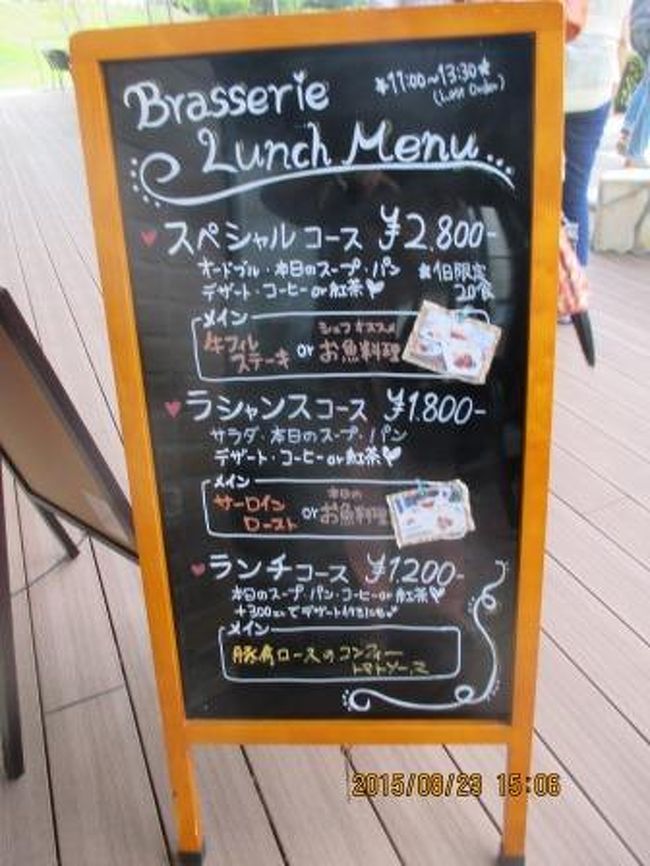 Brasserie
*11:00~13:30*
(Last Order)
Lunch Menu...
スペシャルコース ¥2.800-
オードブル・本日のスープ・パン
デザート・コーヒー or 紅茶
*1日限定
20食
メイン
牛フィレ
ステーキ
or
シェフオススメ
お魚料理
ラシャンスコース ¥1.800-
サラダ・本日のスープ・パン
デザート・コーヒー or 紅茶
メイン
サーロイン
ロースト
or
本日の
お魚料理
ランチコース ¥1.200-
本日のスープ・パン・コーヒー or 紅茶
+300円でデザート付きにも
メイン
豚肩ロースのコンフィー
トマトソース
2015/08/23 15:06